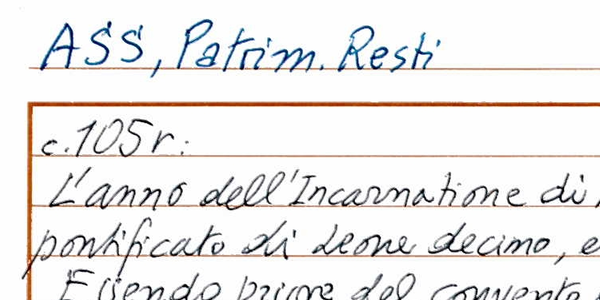 ASS, Patrim. Resti
c.105r:
L'anno dell'Incarnatione di
pontificato di Leone decimo, e
Essendo priore del convento